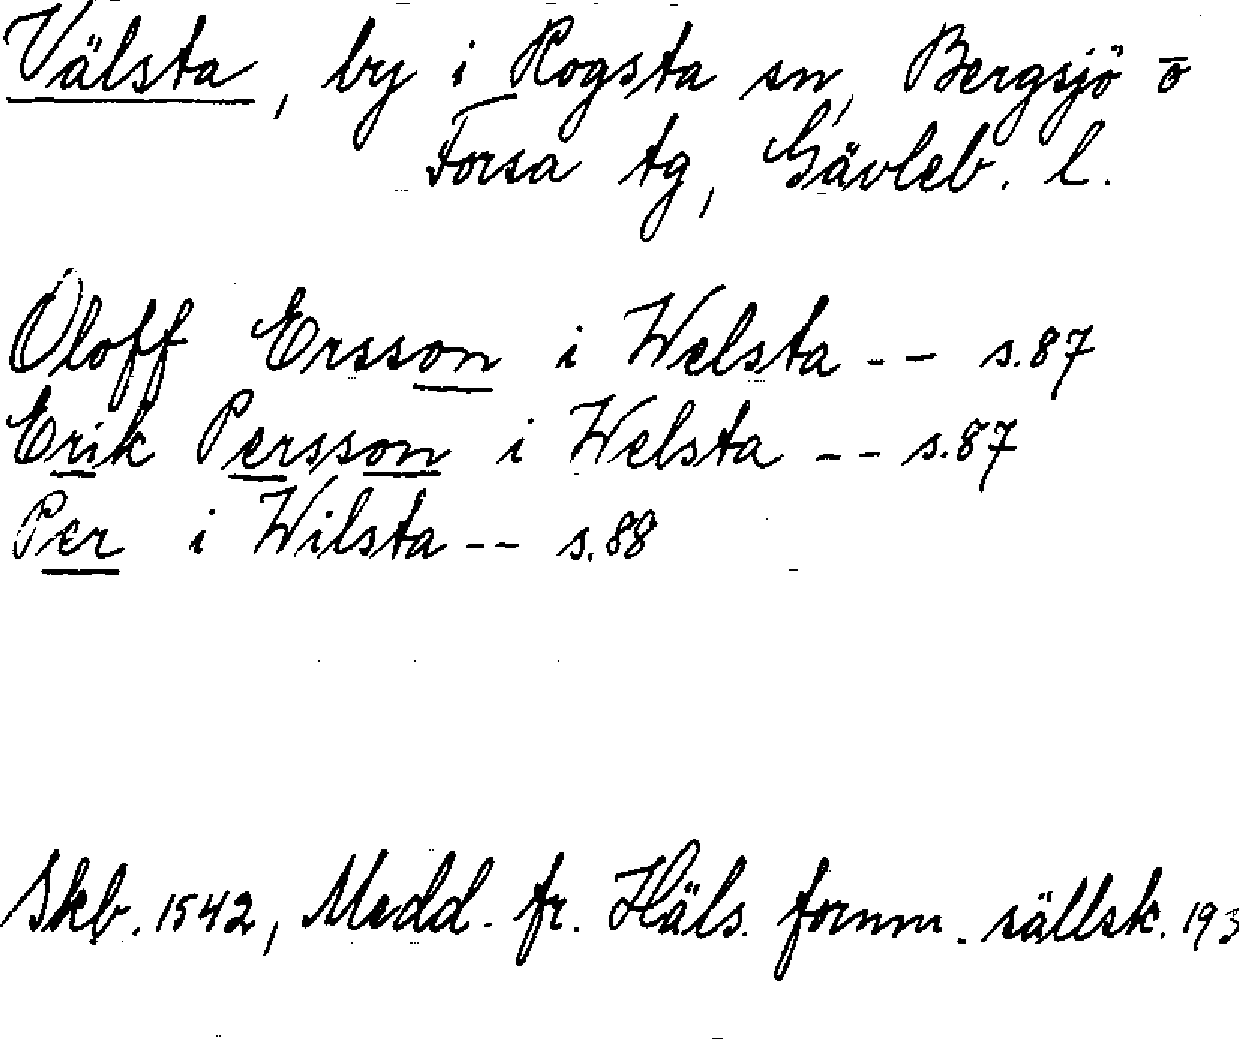 Välsta, by i Rogsta sn, Bergsjö o
Forsa tg, Gävleb. l.
Oloff Ersson i Welsta -- s.87
Erik Persson i Welsta -- s.87
Per i Wilsta -- s.88
Skb. 1542, Medd. fr. Häls. fornm. sällsk. 193